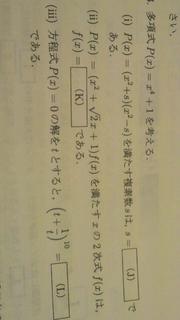 さい.
多項式 P(x) = x⁴ + 1 を考える.
(i) P(x) = (x² + s)(x² − s) を満たす複素数 s は, s = (J) で
ある.
(ii) P(x) = (x² + √2x + 1)f(x) を満たす x の2次式 f(x) は,
f(x) = (K) である.
(iii) 方程式 P(x) = 0 の解を t とすると, (t + 1/t)¹⁰ = (L)
である.